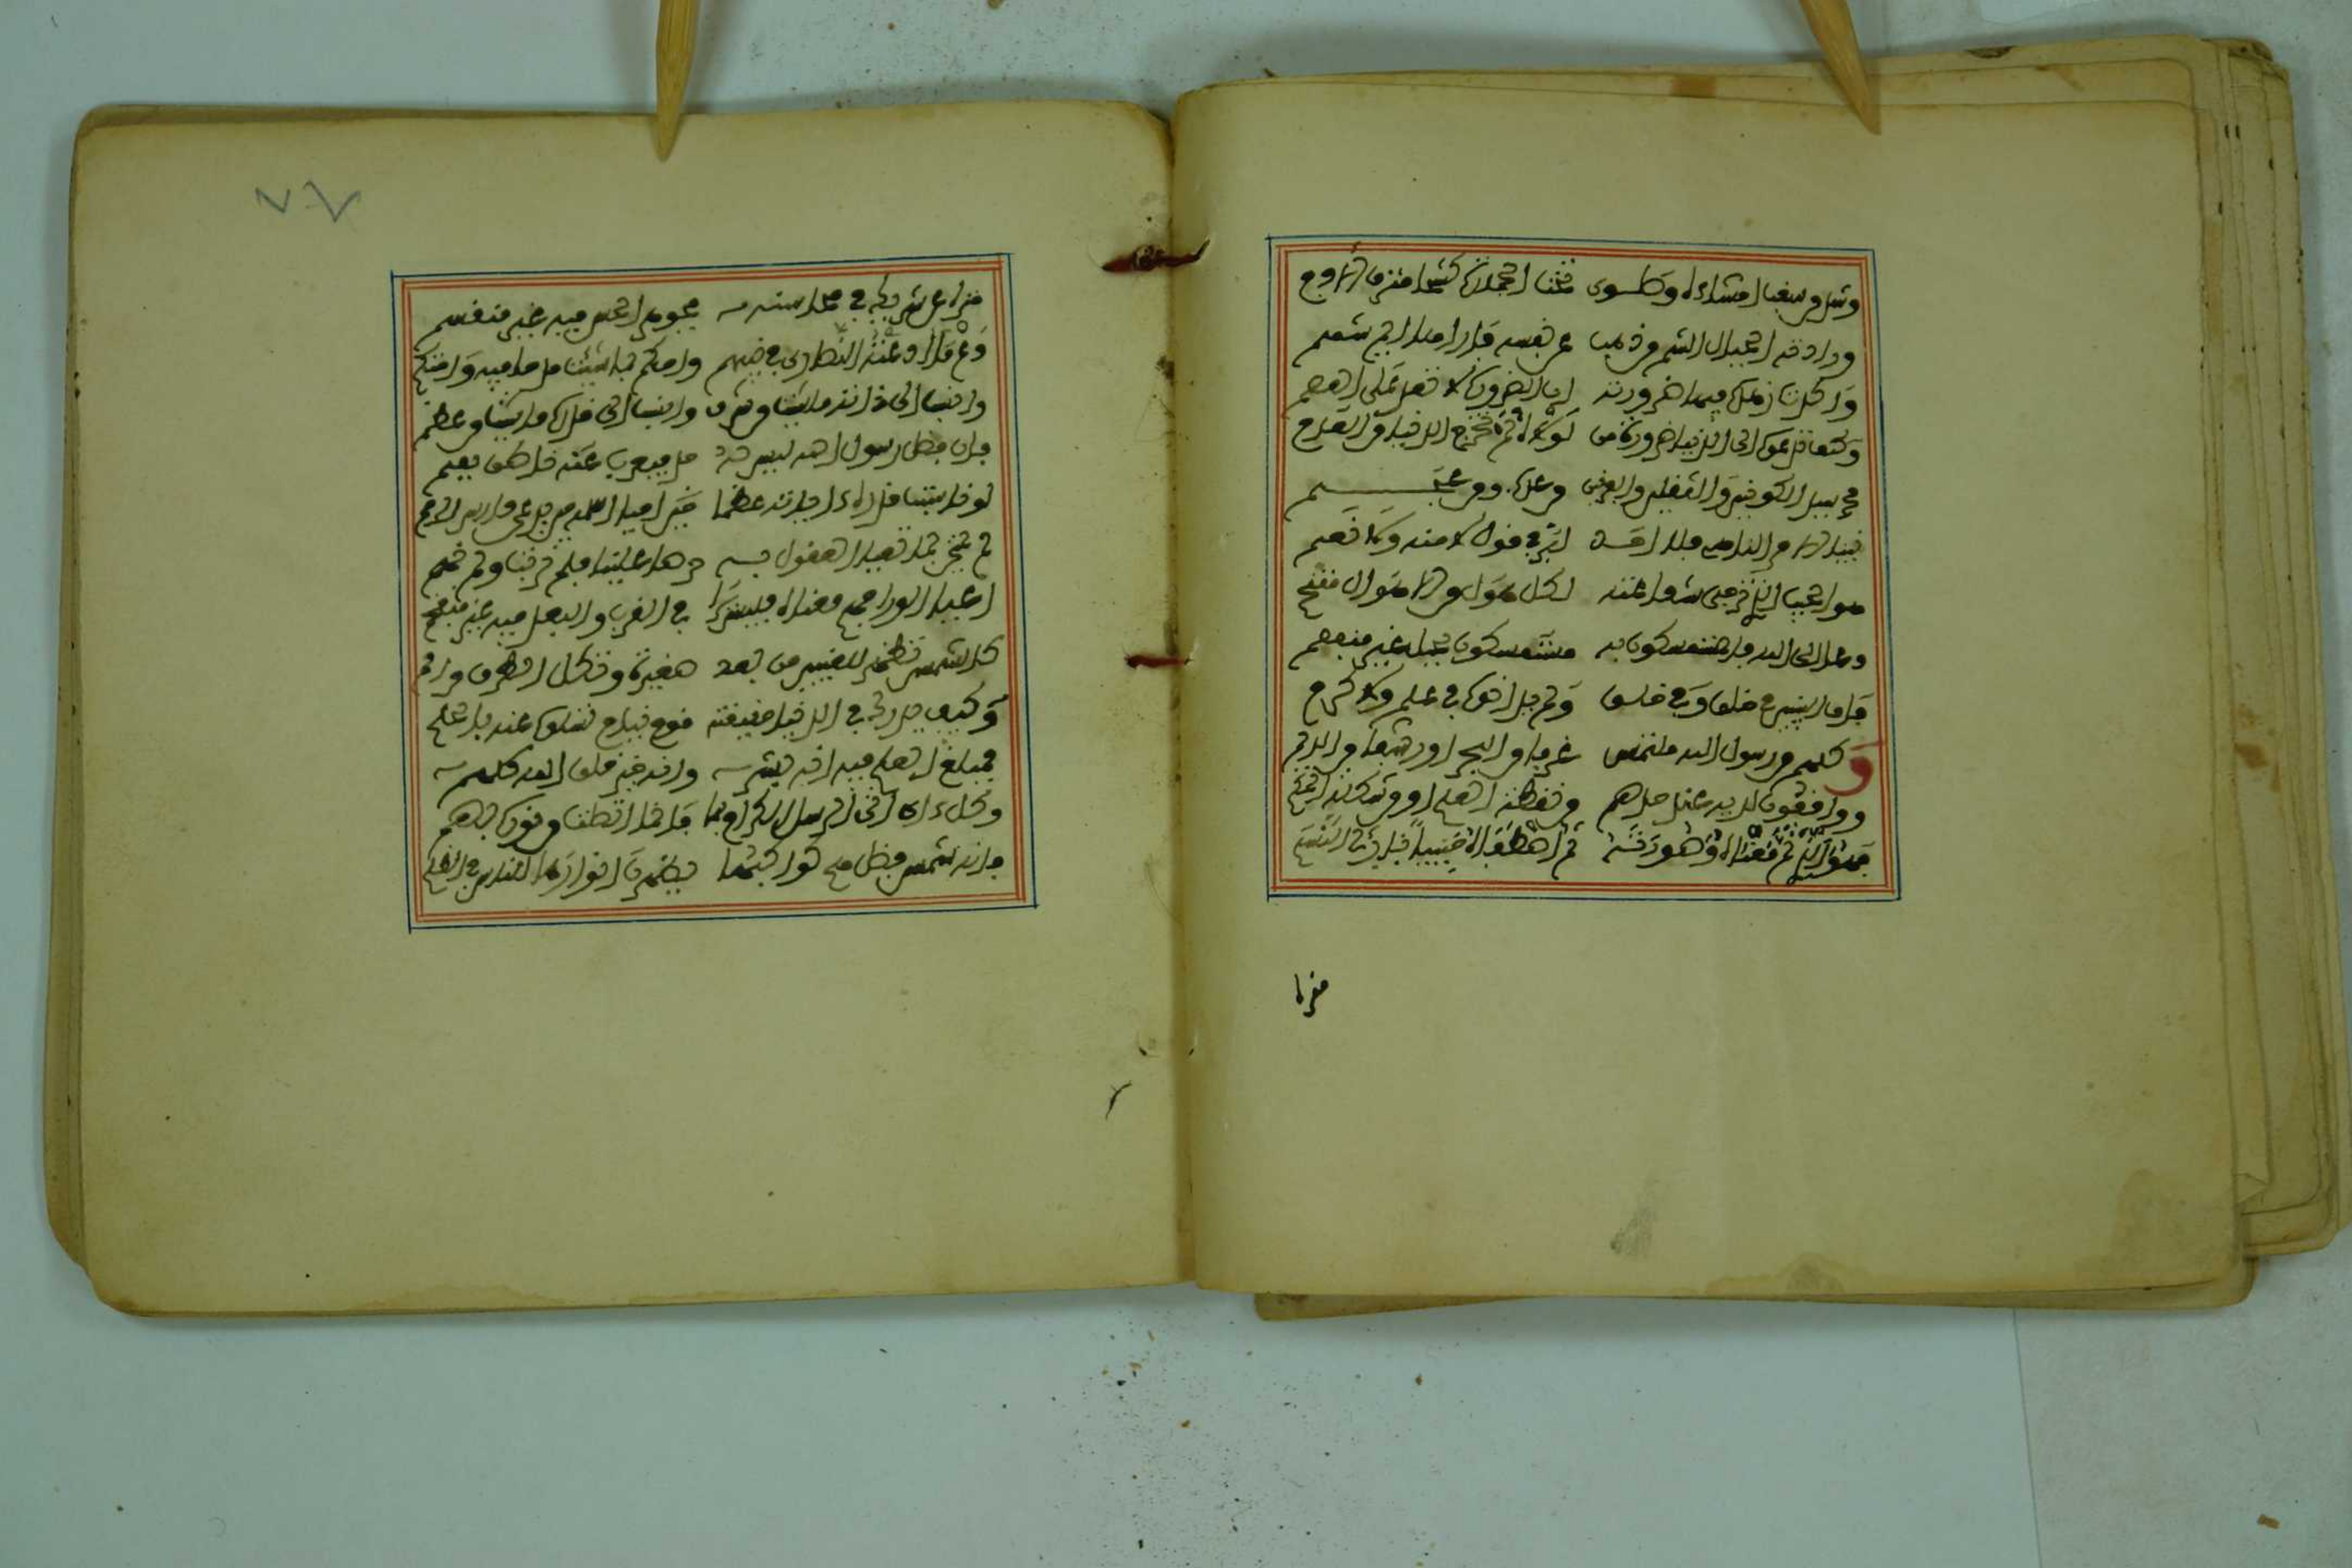 وشد من سغب احشاءه وطوى تحت الحجارة كشحا مترف الادم
وراودته الجبال الشم من ذهب عن نفسه فاراها ايما شمم
واكدت زهده فيها ضرورته ان الضرورة لا تعدو على العصم
وكيف تدعوا الى الدنيا ضرورة من لولاه لم تخرج الدنيا من العدم
محمد سيد الكونين والثقلين والفريقين من عرب ومن عجم
نبينا الامر الناهي فلا احد ابر في قول لا منه ولا نعم
هو الحبيب الذي ترجى شفاعته لكل هول من الاهوال مقتحم
دعا الى الله فالمستمسكون به مستمسكون بحبل غير منفصم
فاق النبيين في خلق وفي خلق ولم يدانوه في علم ولا كرم
وكلهم من رسول الله ملتمس غرفا من البحر او رشفا من الديم
وواقفون لديه عند حدهم من نقطة العلم او من شكلة الحكم
فهو الذي تم معناه وصورته ثم اصطفاه حبيبا بارئ النسم
منزه
منزه عن شريك في محاسنه فجوهر الحسن فيه غير منقسم
دع ما ادعته النصارى في نبيهم واحكم بما شئت مدحا فيه واحتكم
وانسب الى ذاته ما شئت من شرف وانسب الى قدره ما شئت من عظم
فان فضل رسول الله ليس له حد فيعرب عنه ناطق بفم
لو ناسبت قدره اياته عظما احيا اسمه حين يدعى دارس الرمم
لم يمتحنا بما تعيا العقول به حرصا علينا فلم نرتب ولم نهم
اعيا الورى فهم معناه فليس يرى في القرب والبعد فيه غير منفحم
كالشمس تظهر للعينين من بعد صغيرة وتكل الطرف من امم
وكيف يدرك في الدنيا حقيقته قوم نيام تسلوا عنه بالحلم
فمبلغ العلم فيه انه بشر وانه خير خلق الله كلهم
وكل ءاي اتى الرسل الكرام بها فانما اتصلت من نوره بهم
فانه شمس فضل هم كواكبها يظهرن انوارها للناس في الظلم